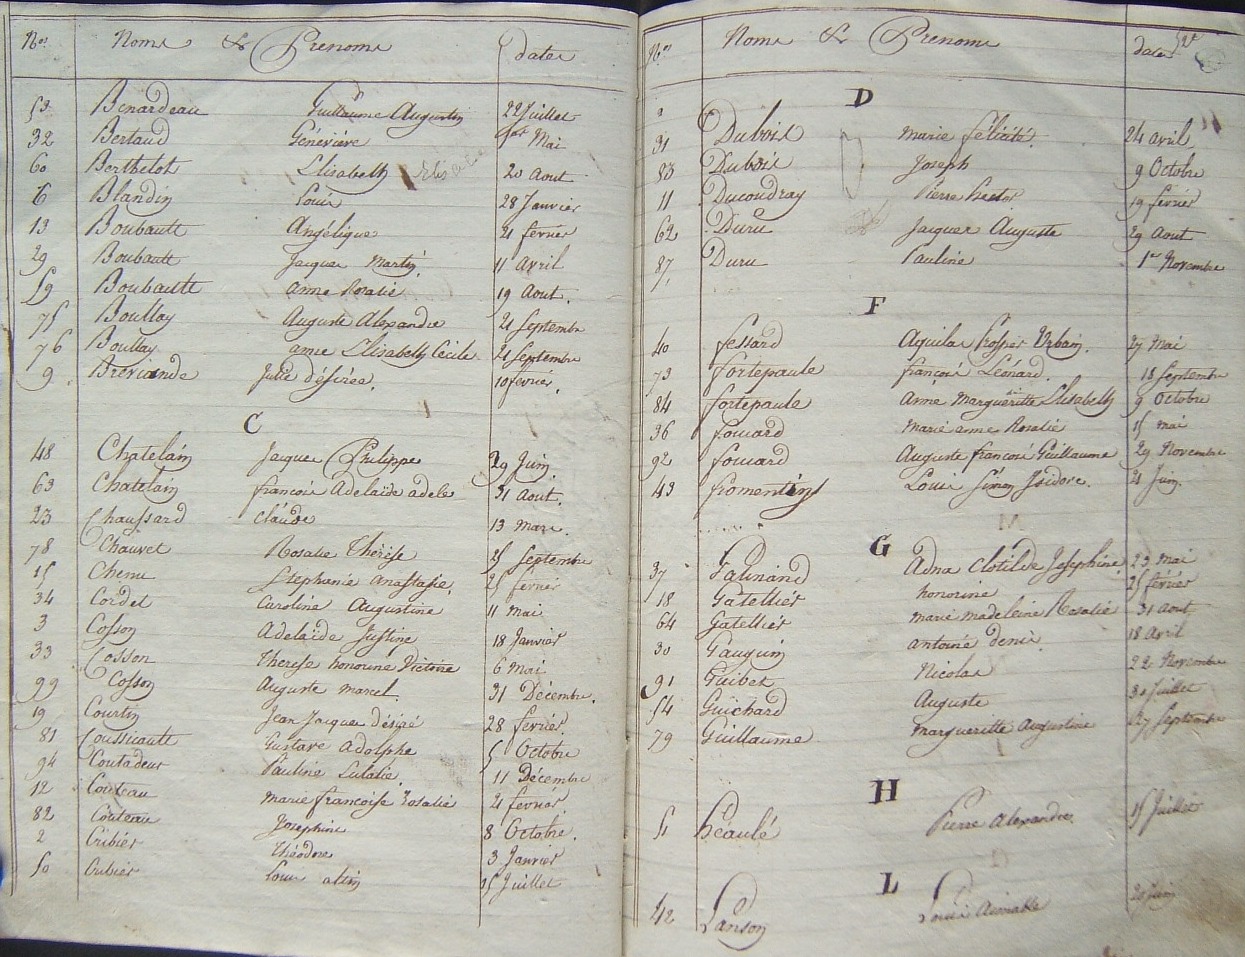 Nos Noms & Prenoms dates
53 Benardeau Guillaume Augustin 22 Juillet
32 Bertaud Géneviéve 1er Mai
60 Berthelot Elisabeth 20 Aout
6 Blandin Louis 28 Janvier
13 Boubault Angélique 21 fevrier
29 Boubault Jacques Martin 11 Avril
59 Boubault anne Rosalie 19 Aout.
75 Boullay Auguste Alexandre 21 Septembre
76 Boullay anne Elisabeth Cecile 21 Septembre
9 Breviande Julie désirée. 10 fevrier.
C
48 Chatelain Jacques Philippe 29 Juin
63 Chatelain francois Adelaïde adele 31 Aout.
23 Chaussard claude 13 mars.
78 Chauvet Rosalie Thérése 25 Septembre
15 Chenu Stephanie anastasie. 25 fevrier
34 Cordel Caroline Augustine 11 Mai
3 Cosson Adelaïde Justine 18 Janvier
33 Cosson Therese honorine Victoire 6 Mai
99 Cosson Auguste marcel 31 Décembre.
19 Courtin Jean Jacques désiré 28 fevrier.
81 Coussicault Gustave Adolphe 5 Octobre
94 Coutadeur Pauline Eulalie 11 Décembre
12 Couteau Marie francoise Rosalie 21 fevrier
82 Couteau Josephine 8 Octobre.
2 Cribier Théodore 3 Janvier
50 Cribier Louis 15 Juillet
Nos Noms & Prenoms dates
D
31 Dubois Marie félicité. 24 avril
83 Dubois Joseph 9 Octobre
11 Ducoudray Pierre hector 19 fevrier
62 Duru Jacques Auguste 29 Aout
87 Duru Pauline 1er Novembre
F
40 fessard Aquilas Prosper Urbain. 27 Mai
73 fortepaule francois Léonard. 18 Septembre
84 fortepaule Anne Margueritte Elisabeth 9 Octobre
36 fouard Marie anne Rosalie 15 mai
92 fouard Auguste francois Guillaume 29 Novembre
43 fromentin Louis Simon Isidore. 21 Juin.
G
37 Galinand Adna Clotilde Josephine 23 Mai
18 Gatellier honorine 25 fevrier
64 Gatellier marie madeleine Rosalie 31 Aout
30 Gauguin antoine denis. 18 Avril
91 Guibet Nicolas 22 Novembre
54 Guichard Auguste 30 Juillet
79 Guillaume Margueritte Augustine 27 Septembre
H
51 héaulé Pierre Alexandre. 15 Juillet
L
42 Lanson Louis Aimable 20 Juin